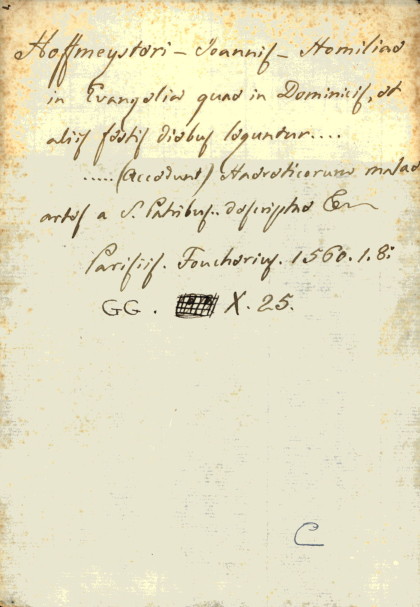 Hoffmeysteri - Joannis - Homiliae
in Evangelia quae in Dominicis, et
aliis festis diebus leguntur....
.....(Accedunt) Haereticorum malae
artes a S. Patribus.. descriptae &
Parisiis. Foucherius. 1560. 1. 8:
GG. X. 25.
C